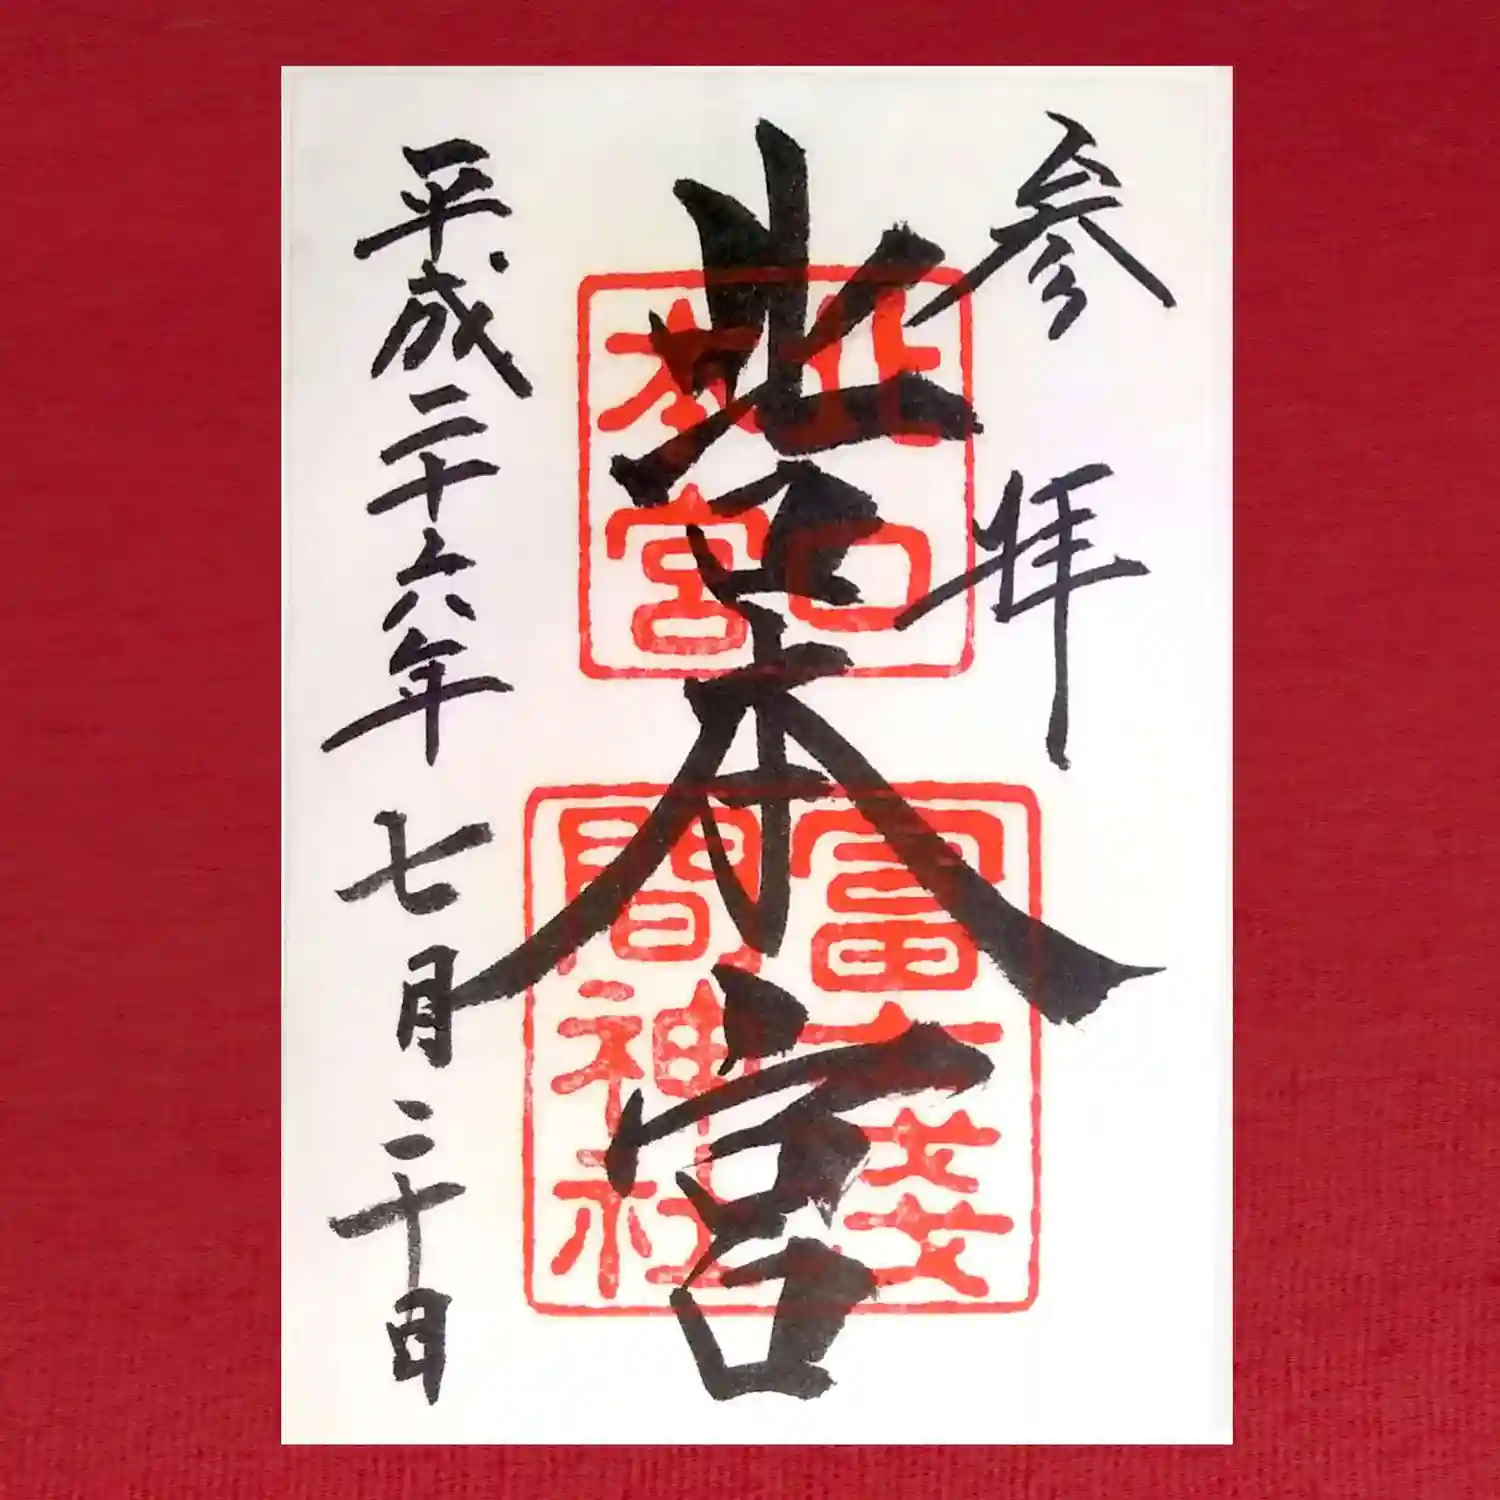 参拝
北口本宮
北口
本宮
冨士淺
間神社
平成二十六年七月二十日